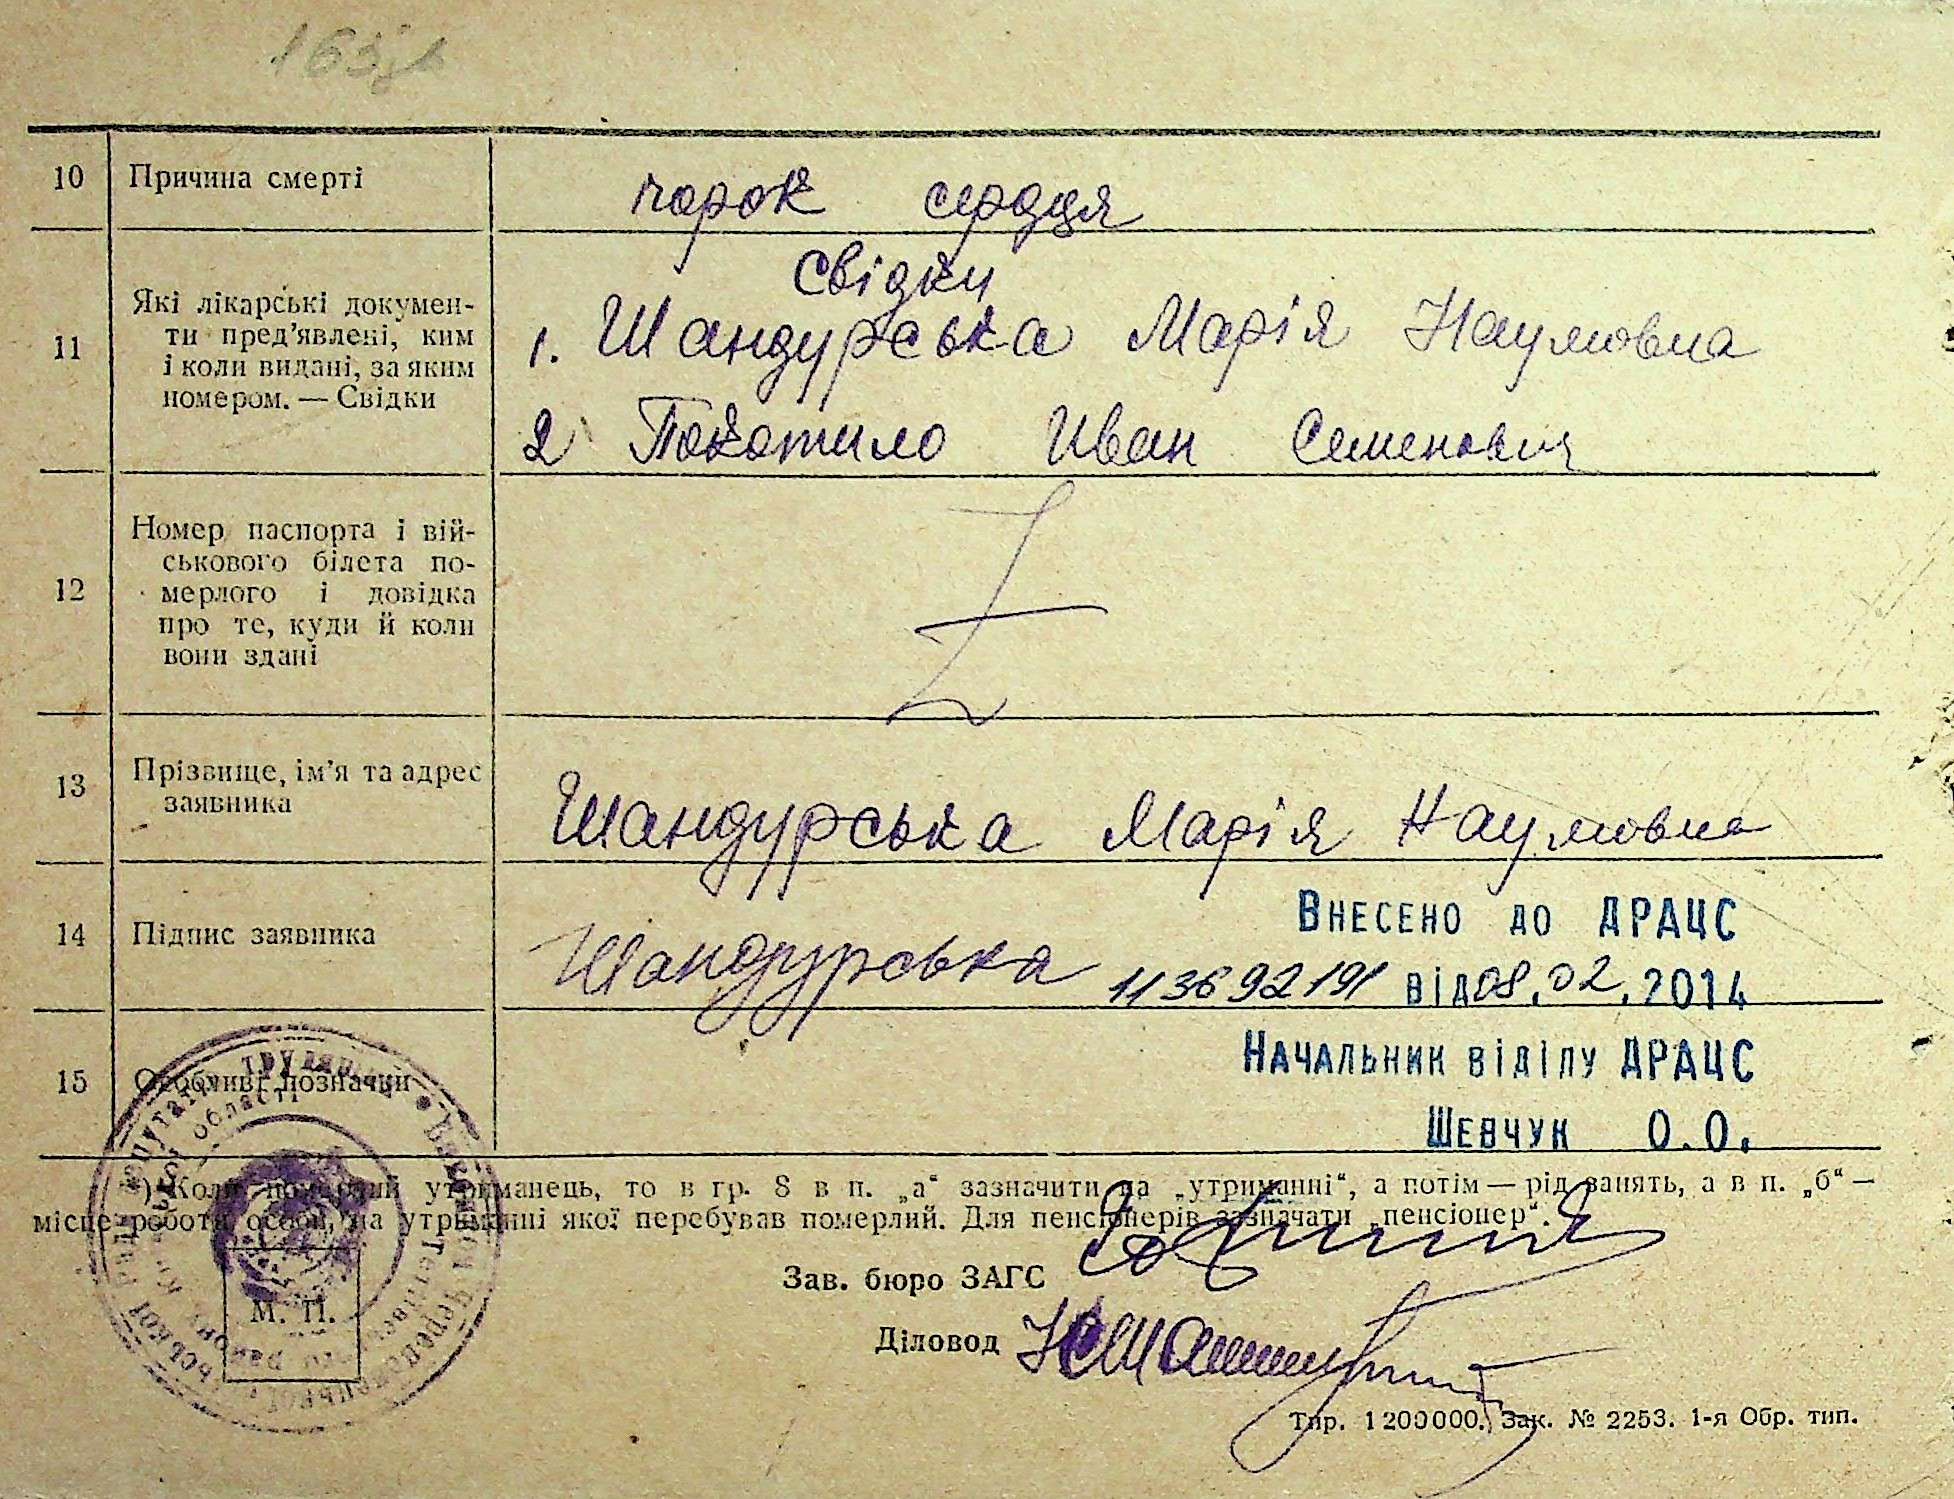 10 Причина смерті порок сердця
11 Які лікарські докумен-
ти пред'явлені, ким
і коли видані, за яким
номером. — Свідки
Свідки
1. Шандурська Марія Наумовна
2 Покотило Иван Семенович
12 Номер паспорта і вій-
ськового білета по-
мерлого і довідка
про те, куди й коли
вони здані
Z
13 Прізвище, ім'я та адрес
заявника
Шандурська Марія Наумовна
14 Підпис заявника Шандурська
Внесено до ДРАЦС
113692191 від 08.02.2014
15 Особливі позначки
Начальник віділу ДРАЦС
Шевчук О.О.
*) Коли померлий утриманець, то в гр. 8 в п. „а“ зазначити на „утриманні“, а потім — рід занять, а в п. „б“ —
місце роботи особи, на утриманні якої перебував померлий. Для пенсіонерів зазначати „пенсіонер“.
Зав. бюро ЗАГС
Діловод
М. П.
Тир. 1200000. Зак. № 2253. 1-я Обр. тип.